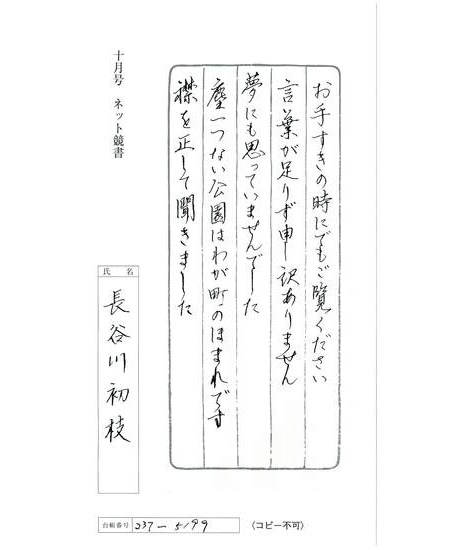 お手すきの時にでもご覧ください
言葉が足りず申し訳ありません
夢にも思っていませんでした
塵一つない公園はわが町のほまれです
襟を正して聞きました
十月号 ネット競書
氏名
長谷川初枝
台紙番号 237-5199
〈コピー不可〉